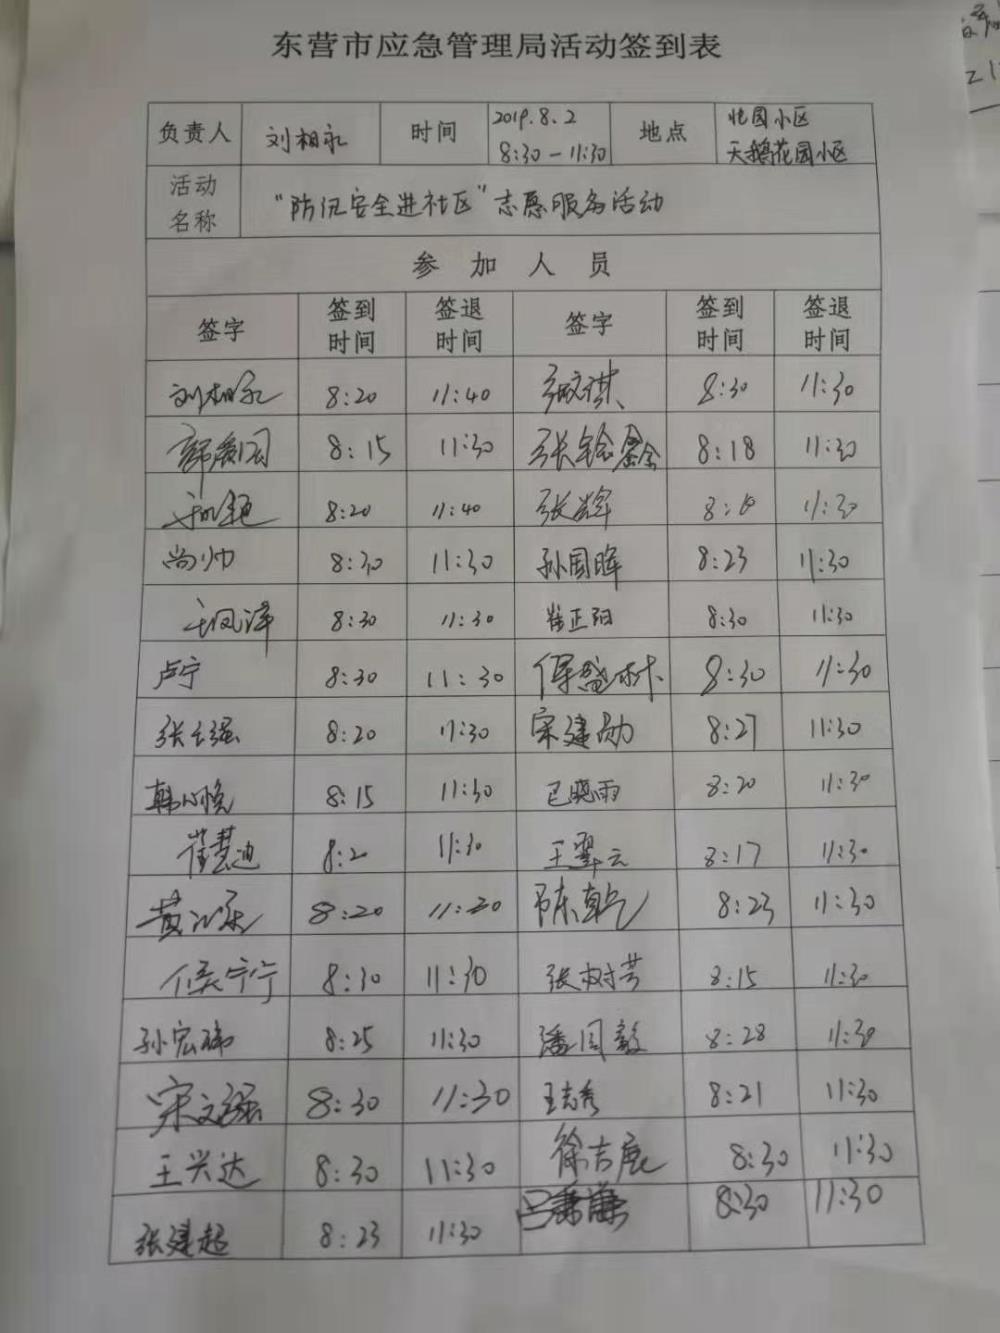 东营市应急管理局活动签到表
负责人 刘相永 时间 2019.8.2 8:30-11:30 地点 小区 天鹅花园小区
活动名称 "防汛安全进社区"志愿服务活动
参加人员
签字 签到时间 签退时间 签字 签到时间 签退时间
刘相永 8:20 11:40 8:30 11:30
8:15 11:30 张 8:18 11:30
8:20 11:40 张辉 11:30
尚帅 8:30 11:30 孙国晖 8:23 11:30
8:30 11:30 崔正阳 8:30 11:30
卢宁 8:30 11:30 8:30 11:30
8:20 11:30 宋建勋 8:27 11:30
韩心悦 8:15 11:30 巴晓雨 8:20 11:30
崔慧迪 8:2 11:30 王翠云 8:17 11:30
8:20 11:20 陈乾 8:23 11:30
侯宁宁 8:30 11:30 张树芳 8:15 11:30
孙宏 8:25 11:30 潘国毅 8:28 11:30
宋文强 8:30 11:30 王志秀 8:21 11:30
王兴达 8:30 11:30 徐吉 8:30 11:30
张建超 8:23 11:30 吕 8:30 11:30